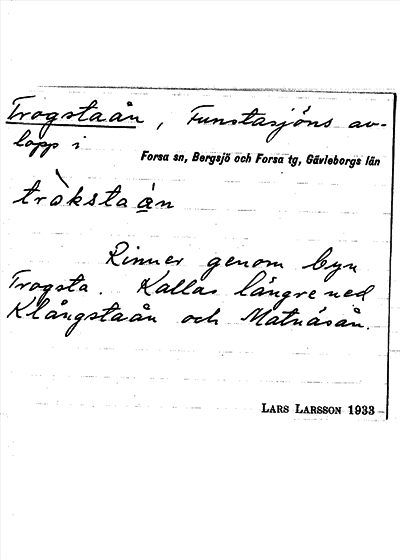 Trogstaån, Funstasjöns av-
lopp i
Forsa sn, Bergsjö och Forsa tg, Gävleborgs län
tròkstaán
Rinner genom byn
Trogsta. Kallas längre ned
Klångstaån och Matnäsån.
LARS LARSSON 1933